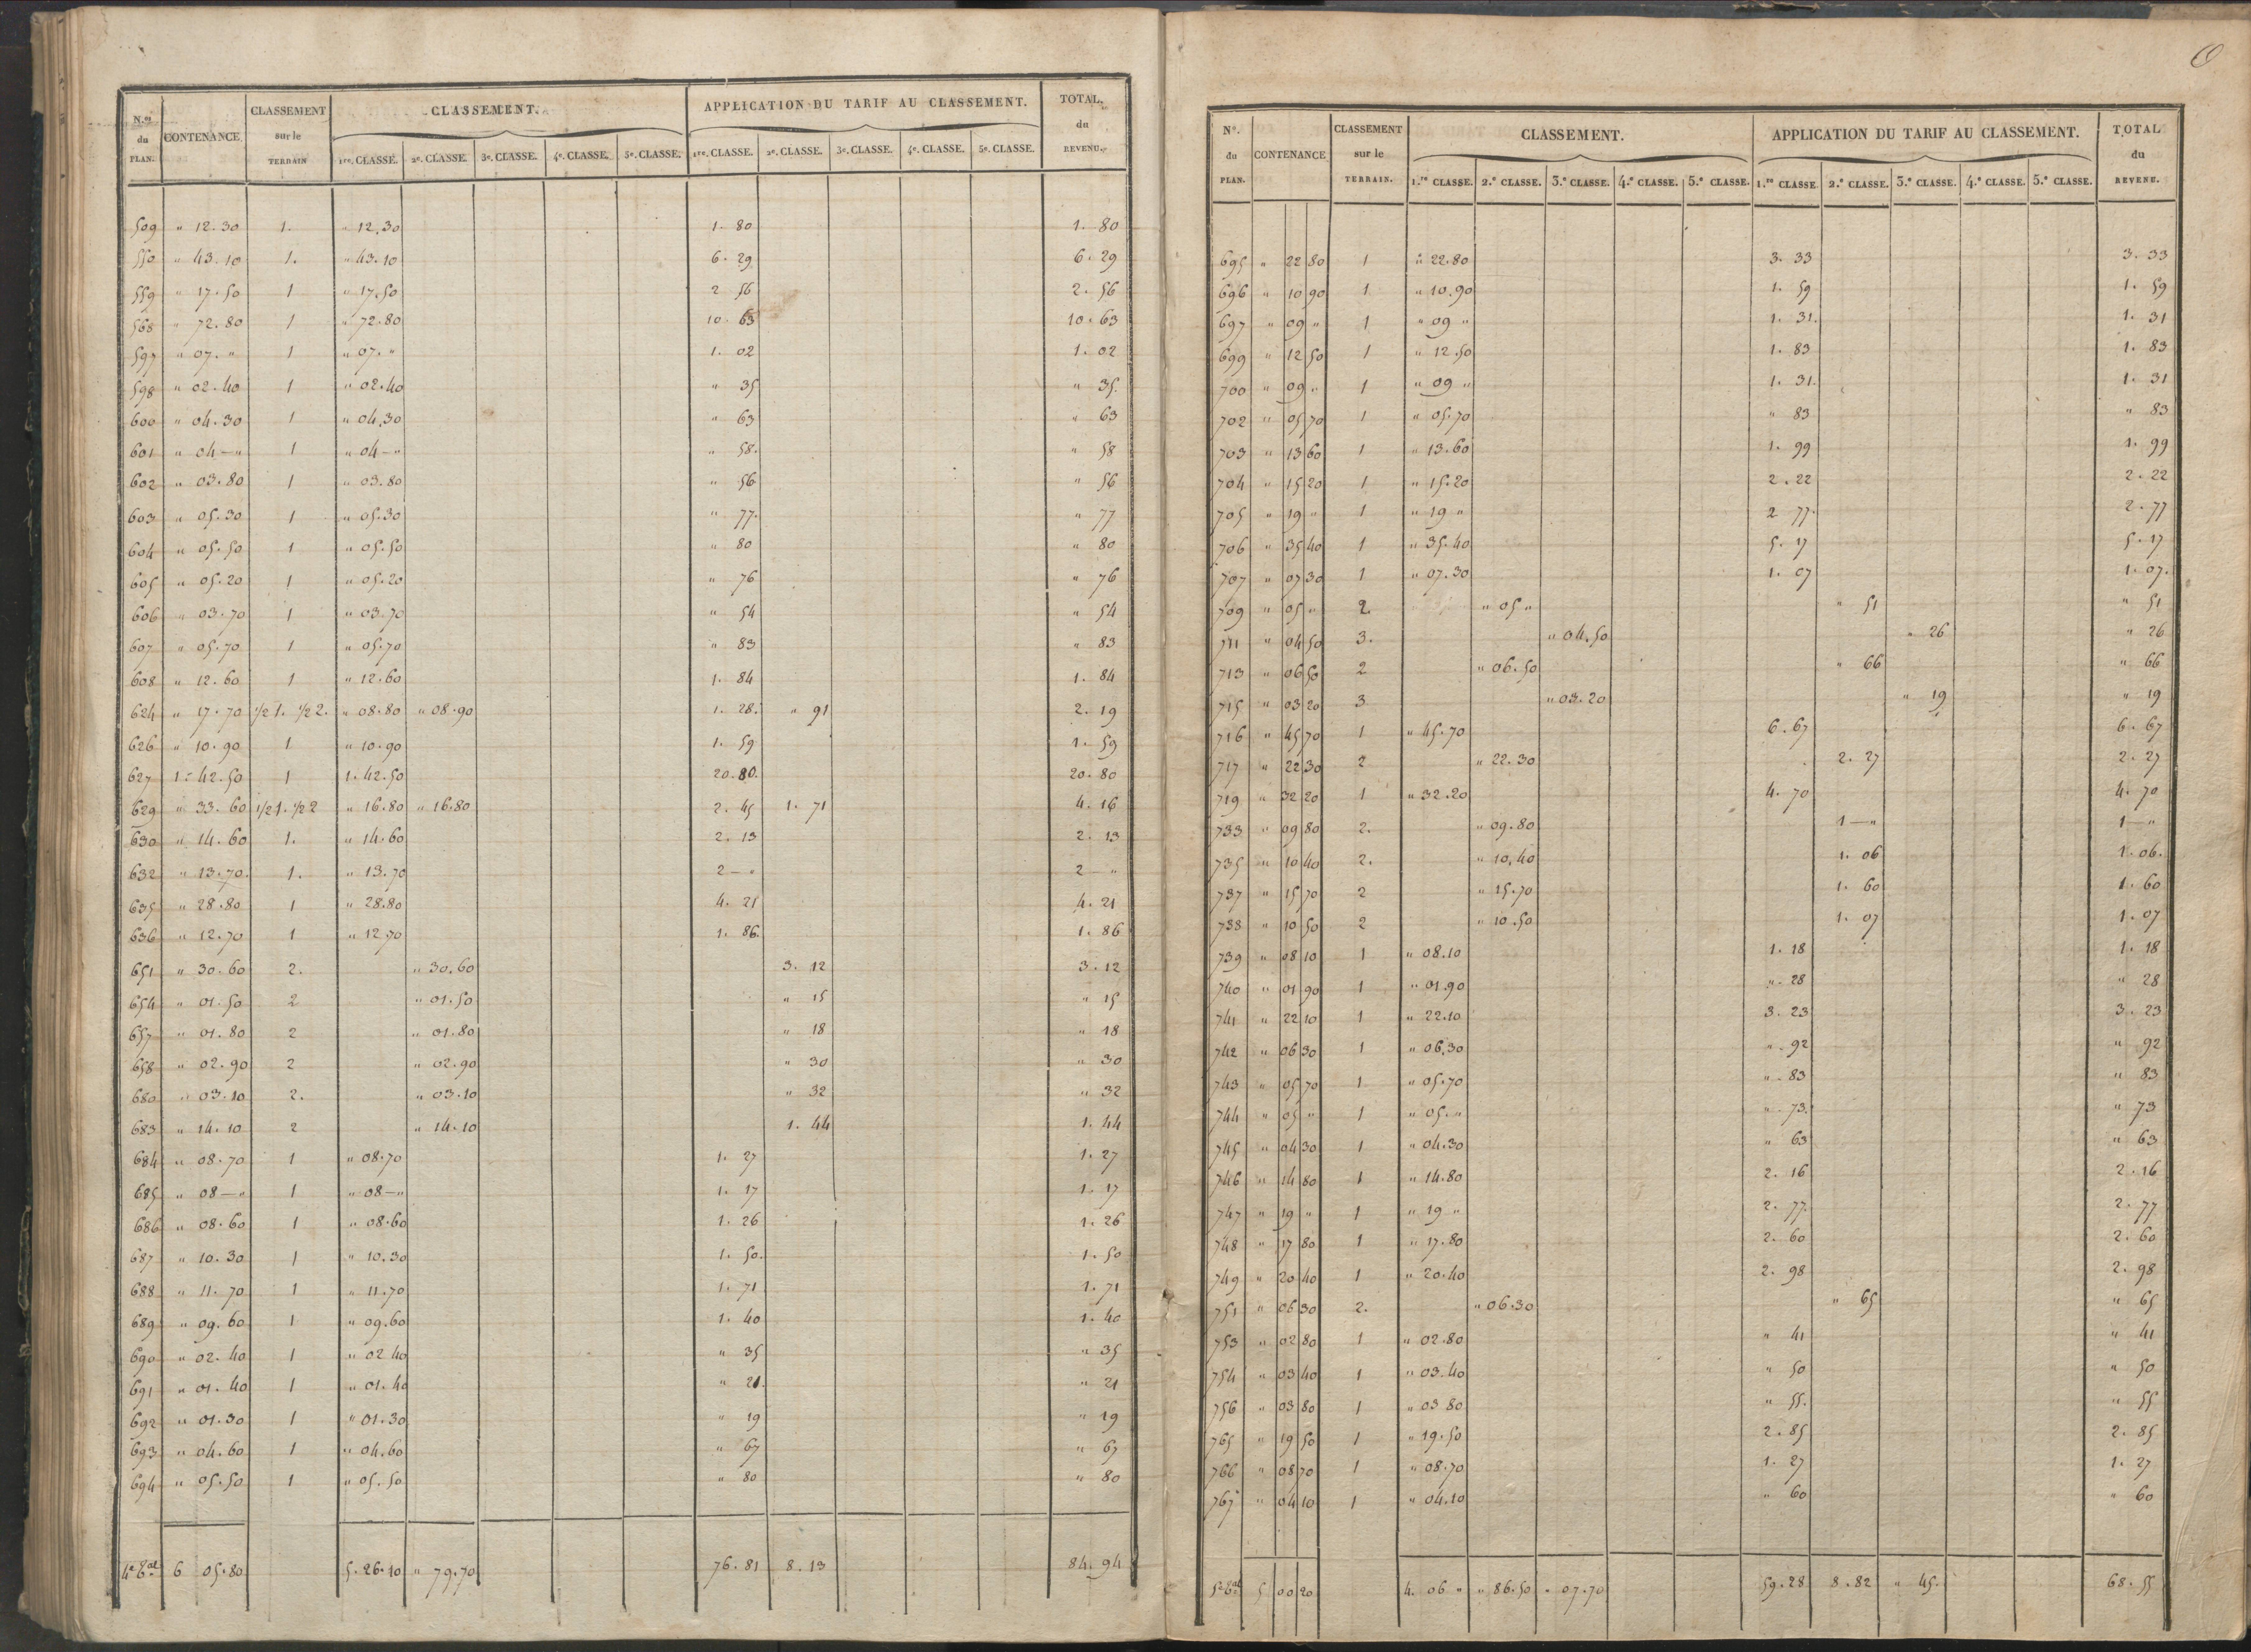 N.os du PLAN. CONTENANCE. CLASSEMENT sur le TERRAIN CLASSEMENT. APPLICATION DU TARIF AU CLASSEMENT. TOTAL. du REVENU.
1re. CLASSE. 2e. CLASSE. 3e. CLASSE. 4e. CLASSE. 5e. CLASSE. 1re. CLASSE. 2e. CLASSE. 3e. CLASSE. 4e. CLASSE. 5e. CLASSE.
509 " 12.30 1. " 12.30 1. 80 1. 80
550 " 43.10 1. " 43.10 6. 29 6. 29
559 " 17.50 1 " 17.50 2 56 2. 56
568 " 72.80 1 " 72.80 10. 63 10. 63
597 " 07. " 1 " 07. " 1. 02 1. 02
598 " 02.40 1 " 02.40 " 35 " 35.
600 " 04.30 1 " 04.30 " 63 " 63
601 " 04 — " 1 " 04 — " " 58. " 58
602 " 03.80 1 " 03.80 " 56 " 56
603 " 05.30 1 " 05.30 " 77. " 77
604 " 05.50 1 " 05.50 " 80 " 80
605 " 05.20 1 " 05.20 " 76 " 76
606 " 03.70 1 " 03.70 " 54 " 54
607 " 05.70 1 " 05.70 " 83 " 83
608 " 12.60 1 " 12.60 1. 84 1. 84
624 " 17.70 1/2 1. 1/2 2. " 08.80 " 08.90 1. 28. " 91 2. 19
626 " 10.90 1 " 10.90 1. 59 1. 59
627 1. 42.50 1 1. 42.50 20. 80. 20. 80
629 " 33.60 1/2 1. 1/2 2 " 16.80 " 16.80 2. 45 1. 71 4. 16
630 " 14.60 1. " 14.60 2. 13 2. 13
632 " 13.70. 1. " 13.70 2 — " 2 — "
635 " 28.80 1 " 28.80 4. 21 4. 21
636 " 12.70 1 " 12.70 1. 86. 1. 86
651 " 30.60 2. " 30.60 3. 12 3. 12
654 " 01.50 2 " 01.50 " 15 " 15
657 " 01.80 2 " 01.80 " 18 " 18
658 " 02.90 2 " 02.90 " 30 " 30
680 " 03.10 2. " 03.10 " 32 " 32
683 " 14.10 2 " 14.10 1. 44 1. 44
684 " 08.70 1 " 08.70 1. 27 1. 27
685 " 08 — " 1 " 08 — " 1. 17 1. 17
686 " 08.60 1 " 08.60 1. 26 1. 26
687 " 10.30 1 " 10.30 1. 50. 1. 50
688 " 11.70 1 " 11.70 1. 71 1. 71
689 " 09.60 1 " 09.60 1. 40 1. 40
690 " 02.40 1 " 02 40 " 35 " 35
691 " 01.40 1 " 01.40 " 21. " 21
692 " 01.30 1 " 01.30 " 19 " 19
693 " 04.60 1 " 04.60 " 67 " 67
694 " 05.50 1 " 05.50 " 80 " 80
6 05.80 5. 26.10 " 79.70 76. 81 8. 13 84. 94
N°. du PLAN. CONTENANCE CLASSEMENT sur le TERRAIN. CLASSEMENT. APPLICATION DU TARIF AU CLASSEMENT. TOTAL du REVENU.
1.re CLASSE. 2.e CLASSE. 3.e CLASSE. 4.e CLASSE. 5.e CLASSE. 1.re CLASSE. 2.e CLASSE. 3.e CLASSE. 4.e CLASSE. 5.e CLASSE.
695 " 22 80 1 " 22.80 3. 33 3. 33
696 " 10 90 1 " 10.90 1. 59 1. 59
697 " 09 " 1 " 09 " 1. 31. 1. 31
699 " 12 50 1 " 12.50 1. 83 1. 83
700 " 09 " 1 " 09 " 1. 31. 1. 31
702 " 05 70 1 " 05.70 " 83 " 83
703 " 13 60 1 " 13.60 1. 99 1. 99
704 " 15 20 1 " 15.20 2. 22 2. 22
705 " 19 " 1 " 19 " 2 77. 2. 77
706 " 35 40 1 " 35.40 5. 17 5. 17
707 " 07 30 1 " 07.30 1. 07 1. 07.
709 " 05 " 2. " 05 " " 51 " 51
711 " 04 50 3. " 04.50 " 26 " 26
713 " 06 50 2 " 06.50 " 66 " 66
715 " 03 20 3 " 03.20 " 19 " 19
716 " 45 70 1 " 45.70 6. 67 6. 67
717 " 22 30 2 " 22.30 2. 27 2. 27
719 " 32 20 1 " 32.20 4. 70 4. 70
733 " 09 80 2. " 09.80 1 — " 1 — "
735 " 10 40 2. " 10.40 1. 06 1. 06.
737 " 15 70 2 " 15.70 1. 60 1. 60
738 " 10 50 2 " 10.50 1. 07 1. 07
739 " 08 10 1 " 08.10 1. 18 1. 18
740 " 01 90 1 " 01.90 " 28 " 28
741 " 22 10 1 " 22.10 3. 23 3. 23
742 " 06 30 1 " 06.30 " 92 " 92
743 " 05 70 1. " 05.70 " 83 " 83
744 " 05 " 1 " 05. " " 73. " 73
745 " 04 30 1 " 04.30 " 63 " 63
746 " 14 80 1 " 14.80 2. 16 2. 16
747 " 19 " 1 " 19 " 2. 77. 2. 77
748 " 17 80 1 " 17.80 2. 60 2. 60
749 " 20 40 1 " 20.40 2. 98 2. 98
751 " 06 30 2. " 06.30 " 65 " 65
753 " 02 80 1 " 02.80 " 41 " 41
754 " 03 40 1 " 03.40 " 50 " 50
756 " 03 80 1 " 03 80 " 55. " 55
765 " 19 50 1 " 19.50 2. 85 2. 85
766 " 08 70 1 " 08.70 1. 27 1. 27
767 " 04 10 1 " 04.10 " 60 " 60
5 00 20 4. 06 " " 86.50 " 07.70 59. 28 8. 82 " 45. 68. 55